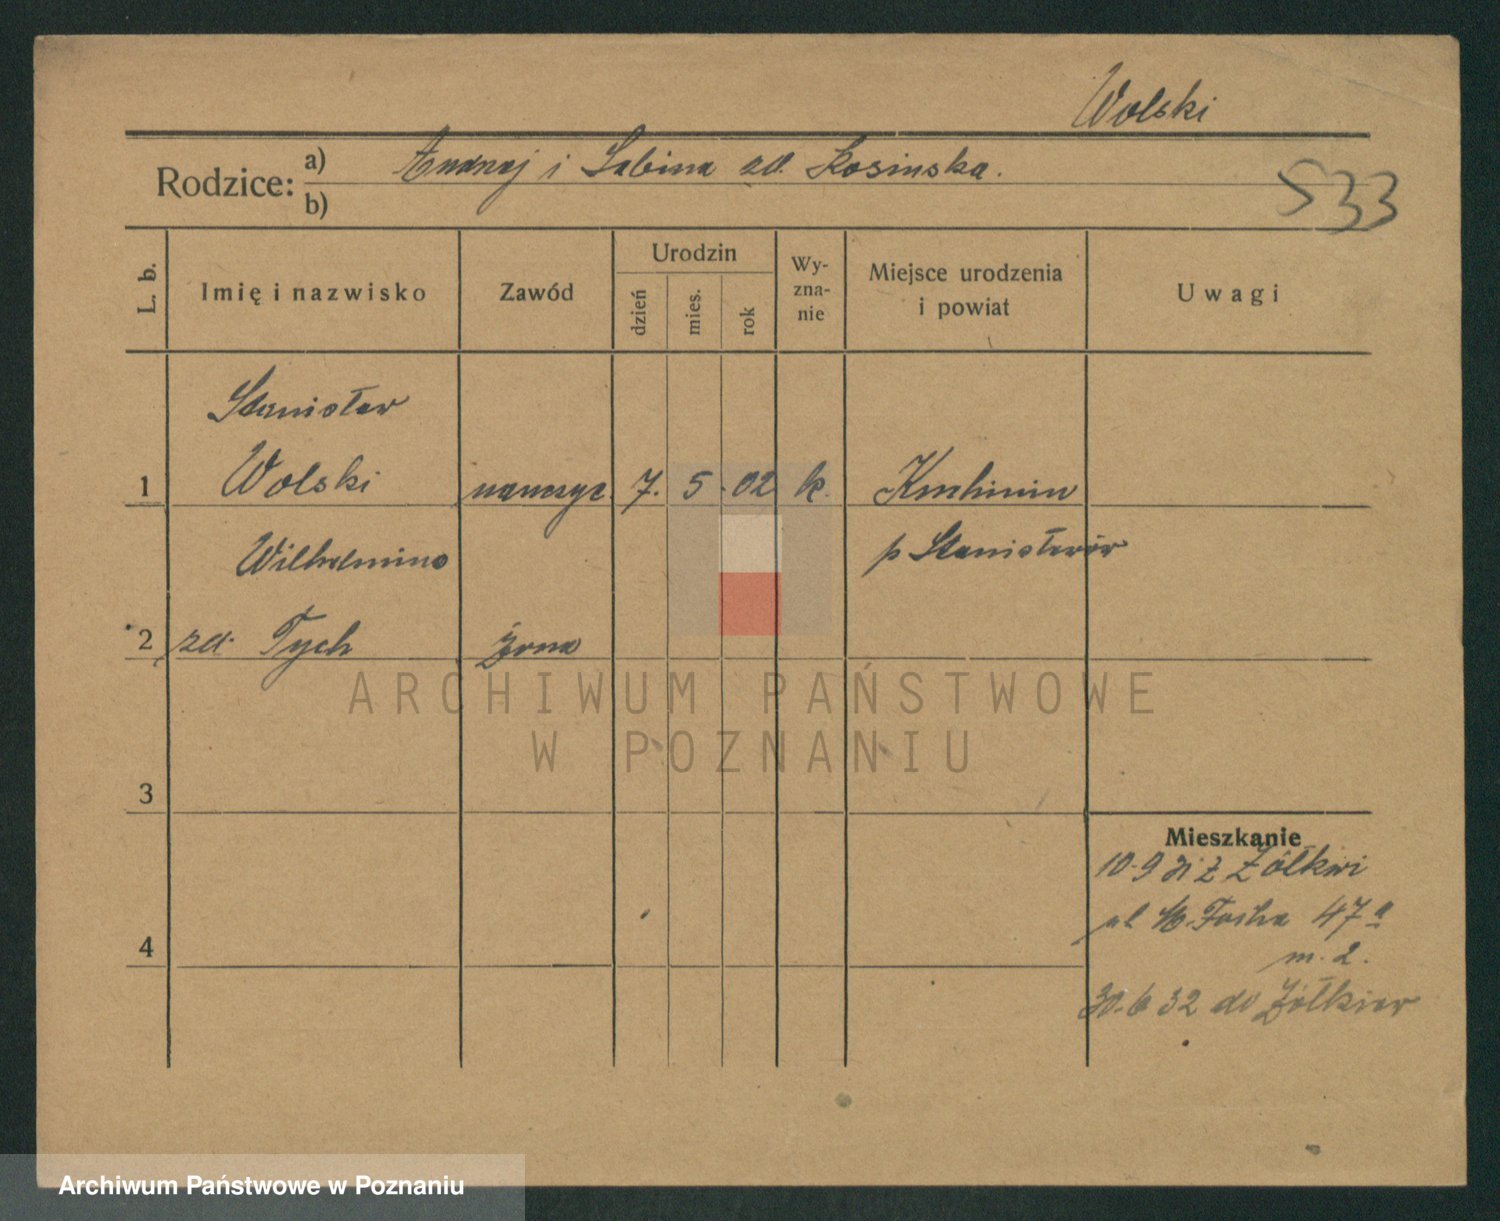 Wolski
Rodzice: a) Andrzej i Sabina zd. Kosinska.
b)
533
L. b.
Imię i nazwisko
Zawód
Urodzin
dzień
mies.
rok
Wy-
zna-
nie
Miejsce urodzenia
i powiat
Uwagi
Stanisław
1 Wolski nauczyc. 7. 5. 02 k. Knihinin
Wilhelmina p Stanisławów
2 zd. Tych żona
ARCHIWUM PAŃSTWOWE
W POZNANIU
3
Mieszkanie
10.9 31 z Żółkwi
ul M. Focha 47a
m. 2.
4
30.6 32 do Żółkiew
Archiwum Państwowe w Poznaniu